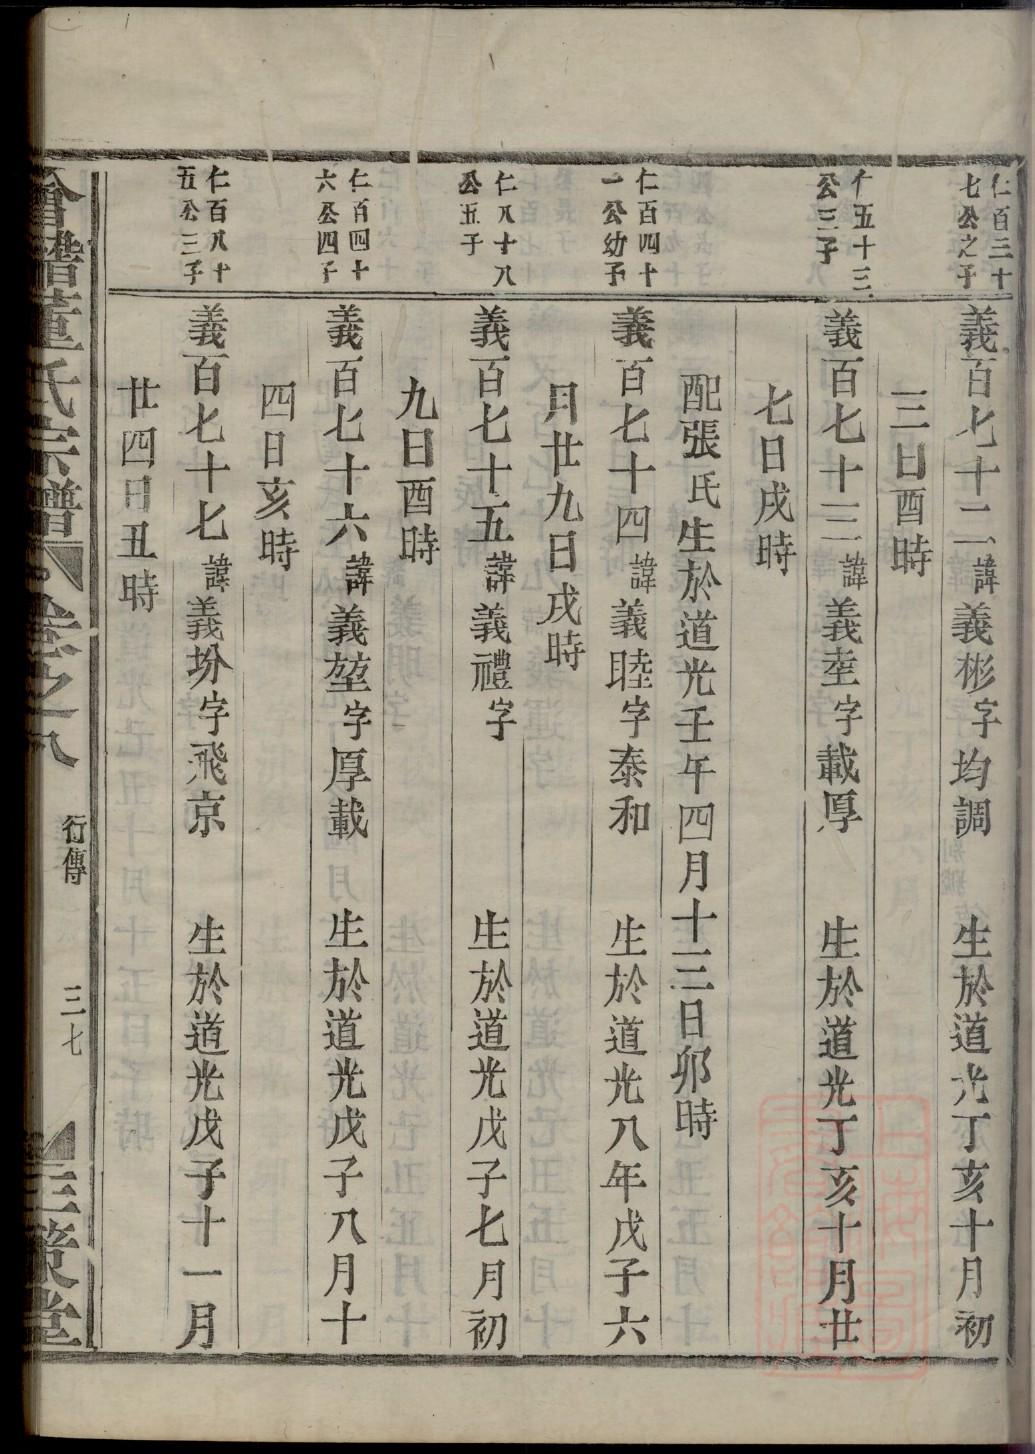 仁百三十
七公之子
義百七十二諱義彬字均調 生於道光丁亥十月初
三日酉時
仁五十三
公三子
義百七十三諱義㘶字載厚 生於道光丁亥十月廿
七日戌時
配張氏生於道光壬午四月十二日卯時
仁百四十
一公幼子
義百七十四諱義睦字泰和 生於道光八年戊子六
月廿九日戌時
仁八十八
公五子
義百七十五諱義禮字 生於道光戊子七月初
九日酉時
仁百四十
六公四子
義百七十六諱義堃字厚載 生於道光戊子八月十
四日亥時
仁百八十
五公三子
義百七十七諱義坋字飛京 生於道光戊子十一月
廿四日丑時
董氏宗譜 卷之八 行傳 三七 三策堂